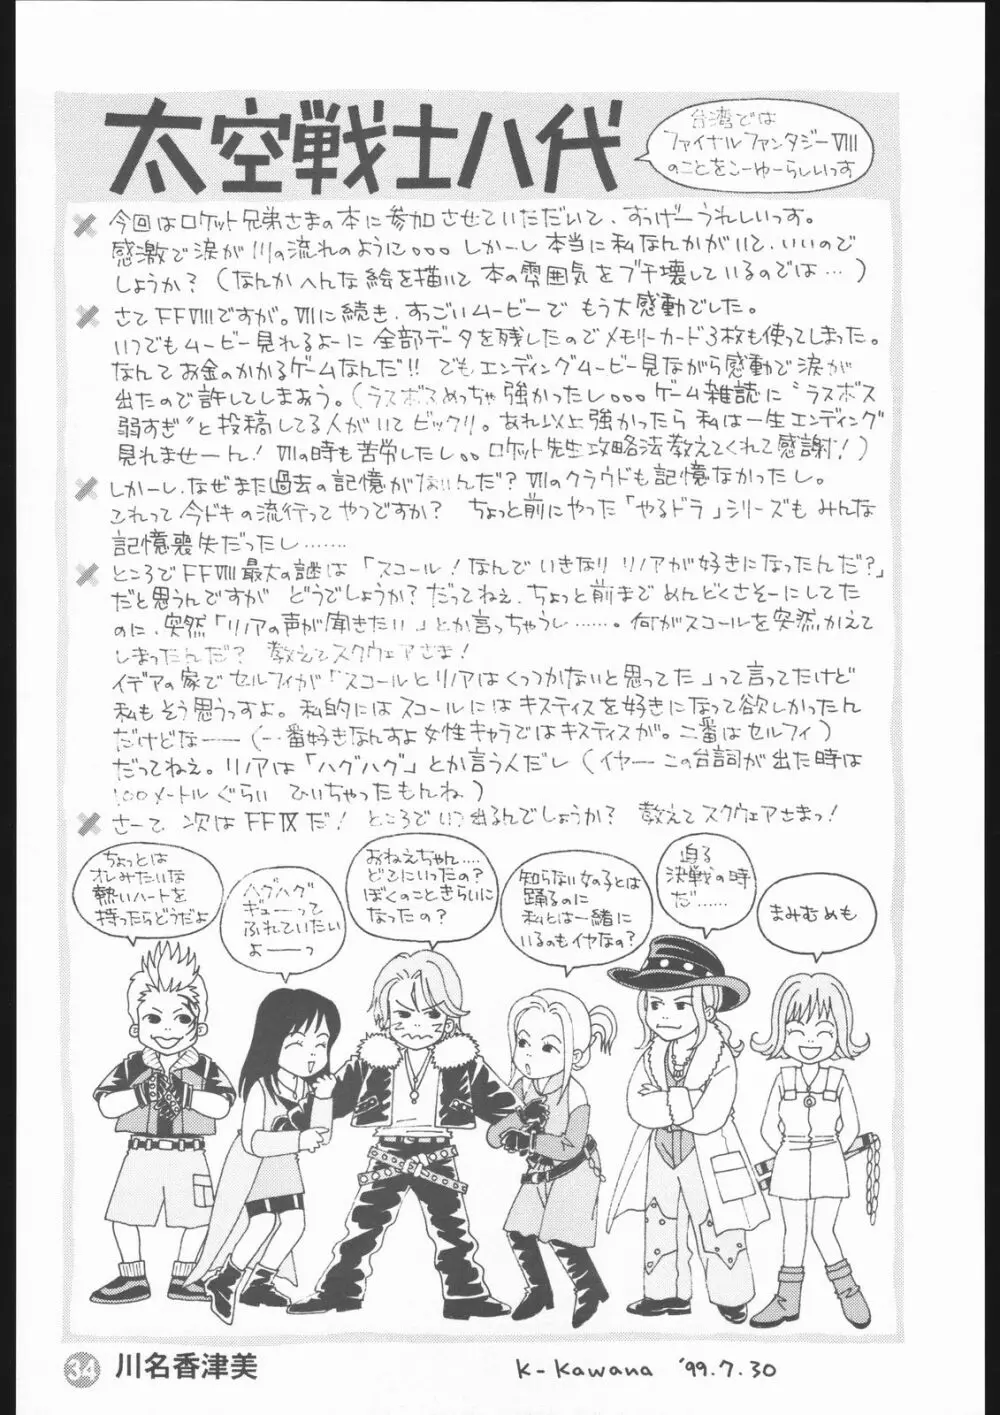 太空戦士八代
台湾では
ファイナルファンタジーⅧ
のことをこーゆーらしいっす
今回はロケット兄弟さまの本に参加させていただいて、すっげーうれしいっす。
感激で涙が川の流れのように。。。しかーし本当に私なんかがいて、いいので
しょうか?(なんかへんな絵を描いて本の雰囲気をブチ壊しているのでは…)
さてFFⅧですが。Ⅶに続き、すっごいムービーでもう大感動でした。
いつでもムービー見れるよーに全部データを残したのでメモリーカード3枚も使ってしまった。
なんてお金のかかるゲームなんだ!!でもエンディングムービー見ながら感動で涙が
出たので許してしまおう。(ラスボスめっちゃ強かったし。。。ゲーム雑誌に"ラスボス
弱すぎ"と投稿してる人がいてビックリ。あれ以上強かったら私は一生エンディング
見れませーん!Ⅶの時も苦労したし。。ロケット先生攻略法教えてくれて感謝!)
しかーし、なぜまた過去の記憶がないんだ?Ⅶのクラウドも記憶なかったし。
これって今ドキの流行ってやつですか?ちょっと前にやった「やるドラ」シリーズもみんな
記憶喪失だったし……
ところでFFⅧ最大の謎は「スコール!なんでいきなりリノアが好きになったんだ?」
だと思うんですがどうでしょうか?だってねえ、ちょっと前までめんどくさそーにしてた
のに、突然「リノアの声が聞きたい」とか言っちゃうし……。何がスコールを突然かえて
しまったんだ?教えてスクウェアさま!
イデアの家でセルフィが「スコールとリノアはくっつかないと思ってた」って言ってたけど
私もそう思うっすよ。私的にはスコールにはキスティスを好きになって欲しかったん
だけどな——(一番好きなんすよ女性キャラではキスティスが。二番はセルフィ)
だってねえ。リノアは「ハグハグ」とか言う人だし(イヤーこの台詞が出た時は
100メートルぐらいひいちゃったもんね)
さーて次はFFⅨだ!ところでいつ出るんでしょうか?教えてスクウェアさまっ!
ちょっとは
オレみたいな
熱いハートを
持ったらどうだよ
ハグハグ
ギューって
ふれていたい
よーーっ
おねえちゃん……
どこにいったの?
ぼくのこときらいに
なったの?
知らない女の子とは
踊るのに
私とは一緒に
いるのもイヤなの?
迫る
決戦の時
だ……
まみむめも
34
川名香津美
K-Kawana '99.7.30